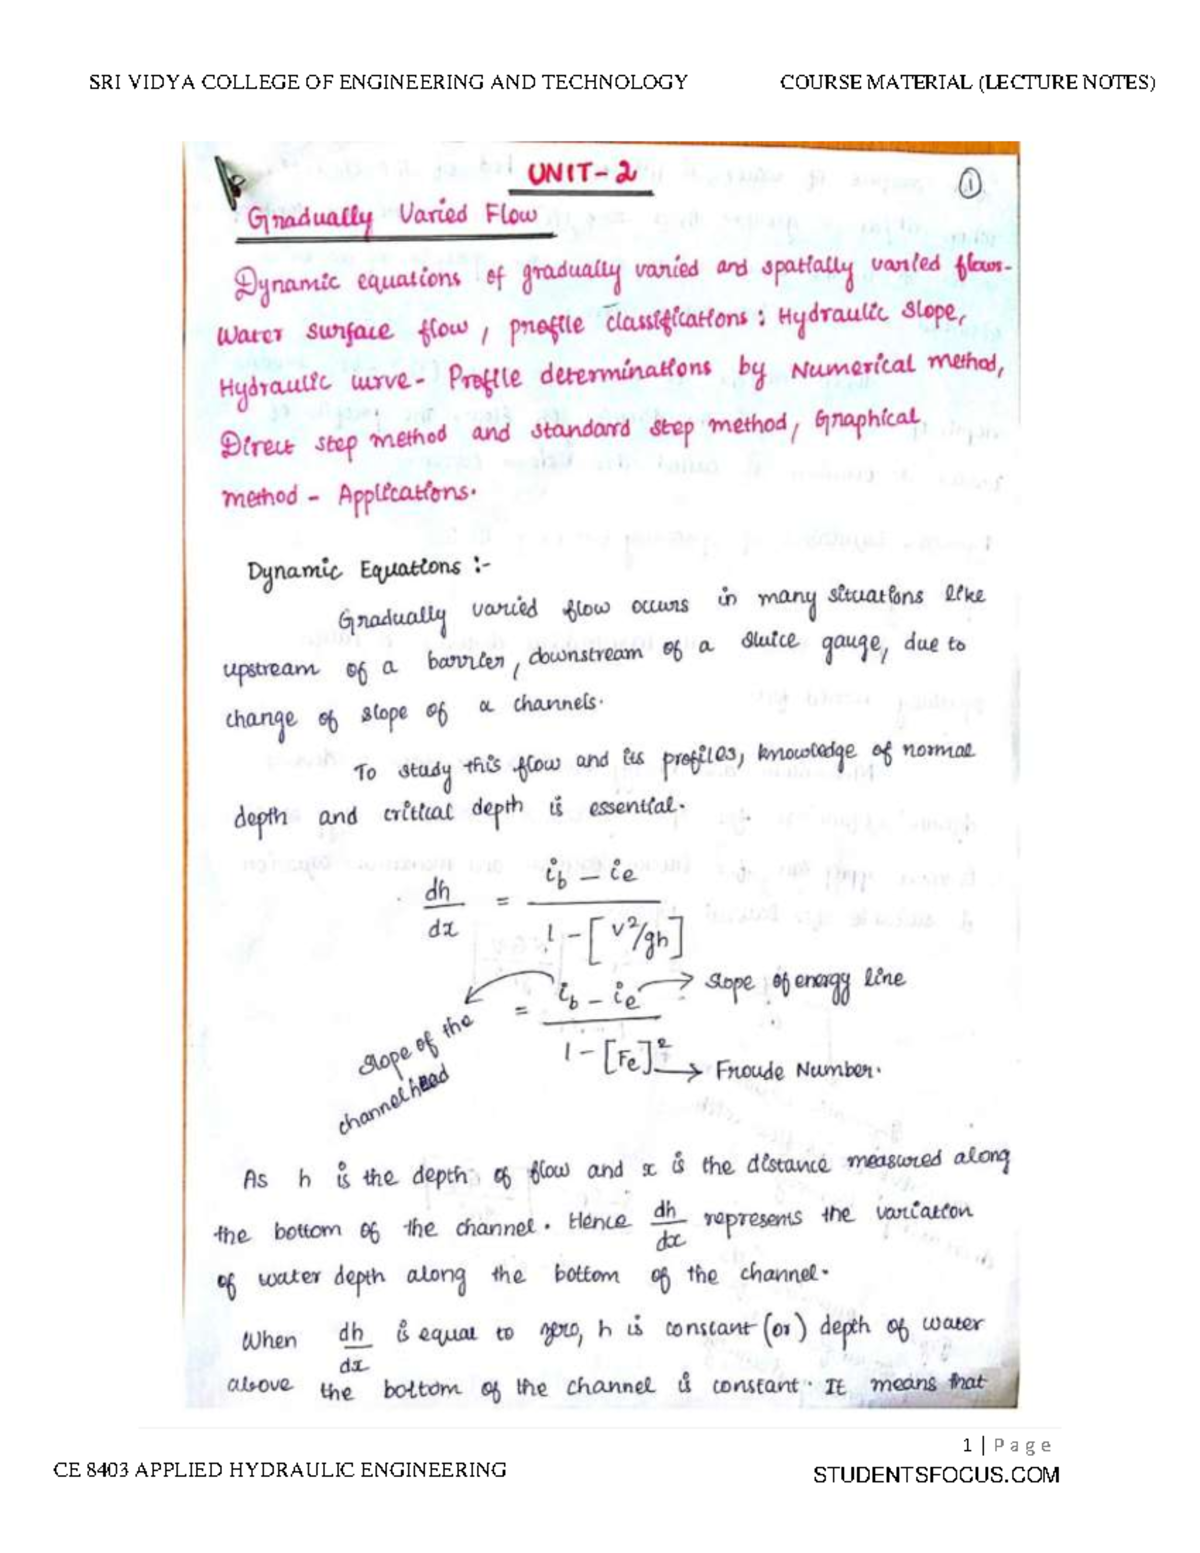 SRI VIDYA COLLEGE OF ENGINEERING AND TECHNOLOGY COURSE MATERIAL (LECTURE NOTES)
UNIT-2
1
Gradually Varied Flow
Dynamic equations of gradually varied and spatially varied flows-
Water surface flow, profile classifications: Hydraulic Slope,
Hydraulic curve- Profile determinations by Numerical method,
Direct step method and standard step method, Graphical
method - Applications.
Dynamic Equations :-
Gradually varied flow occurs in many situations like
upstream of a barrier, downstream of a sluice gauge, due to
change of slope of a channels.
To study this flow and its profiles, knowledge of normal
depth and critical depth is essential.
dh/dx = (ib - ie) / (1 - [V²/gh])
= (ib - ie) / (1 - [Fe]²)
Slope of energy line
Slope of the
channel head
Froude Number.
As h is the depth of flow and x is the distance measured along
the bottom of the channel. Hence dh/dx represents the variation
of water depth along the bottom of the channel.
When dh/dx is equal to zero, h is constant (or) depth of water
above the bottom of the channel is constant. It means that
1 | Page
CE 8403 APPLIED HYDRAULIC ENGINEERING
STUDENTSFOCUS.COM